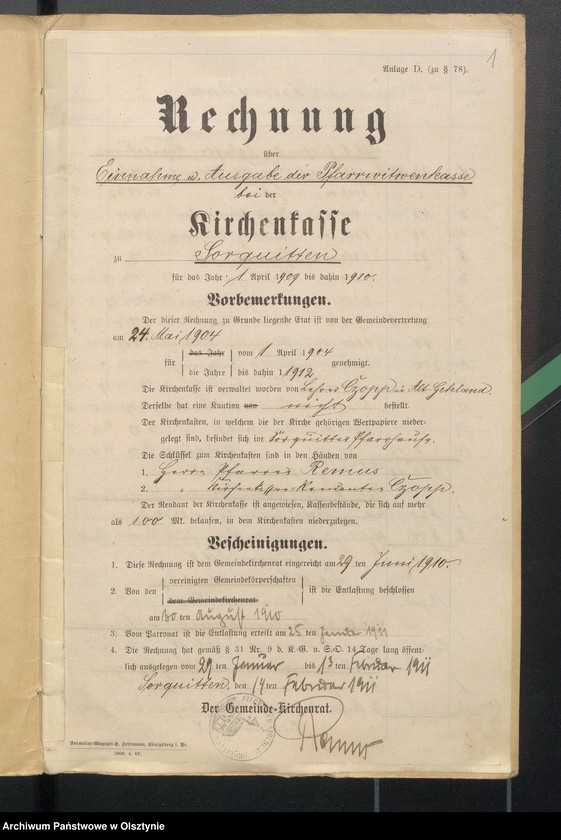 1
Anlage D. (zu § 78).
Rechnung
über
Einnahme u. Ausgabe der Pfarrwitwenkasse
bei der
Kirchenkasse
zu Sorquitten
für das Jahr 1 April 1909 bis dahin 1910.
Vorbemerkungen.
Der dieser Rechnung zu Grunde liegende Etat ist von der Gemeindevertretung
am 24. Mai 1904
für das Jahr vom 1 April 1904 genehmigt.
die Jahre bis dahin 1912
Die Kirchenkasse ist verwaltet worden von Lehrer Czopp in Alt-Gehland.
Derselbe hat eine Kaution von nicht bestellt.
Der Kirchenkasten, in welchem die der Kirche gehörigen Wertpapiere nieder-
gelegt sind, befindet sich im Sorquitter Pfarrhause.
Die Schlüssel zum Kirchenkasten sind in den Händen von
1. Herrn Pfarrer Remus
2. " Kirchenkassen Rendanten Czopp.
Der Rendant der Kirchenkasse ist angewiesen, Kassenbestände, die sich auf mehr
als 100 Mk. belaufen, in dem Kirchenkasten niederzulegen.
Bescheinigungen.
1. Diese Rechnung ist dem Gemeindekirchenrat eingereicht am 29 ten Juni 1910.
2. Von den vereinigten Gemeindekörperschaften ist die Entlastung beschlossen
dem Gemeindekirchenrat
am 30 ten August 1910
3. Vom Patronat ist die Entlastung erteilt am 25 ten Januar 1911
4. Die Rechnung hat gemäß § 31 Nr. 9 d. K. G. u. S.-O. 14 Tage lang öffent-
lich ausgelegen vom 29 ten Januar bis 13 ten Februar 1911
Sorquitten, den 14 ten Februar 1911
Der Gemeinde-Kirchenrat.
Remus
Formular-Magazin H. Herrmann, Königsberg i. Pr.
Archiwum Państwowe w Olsztynie